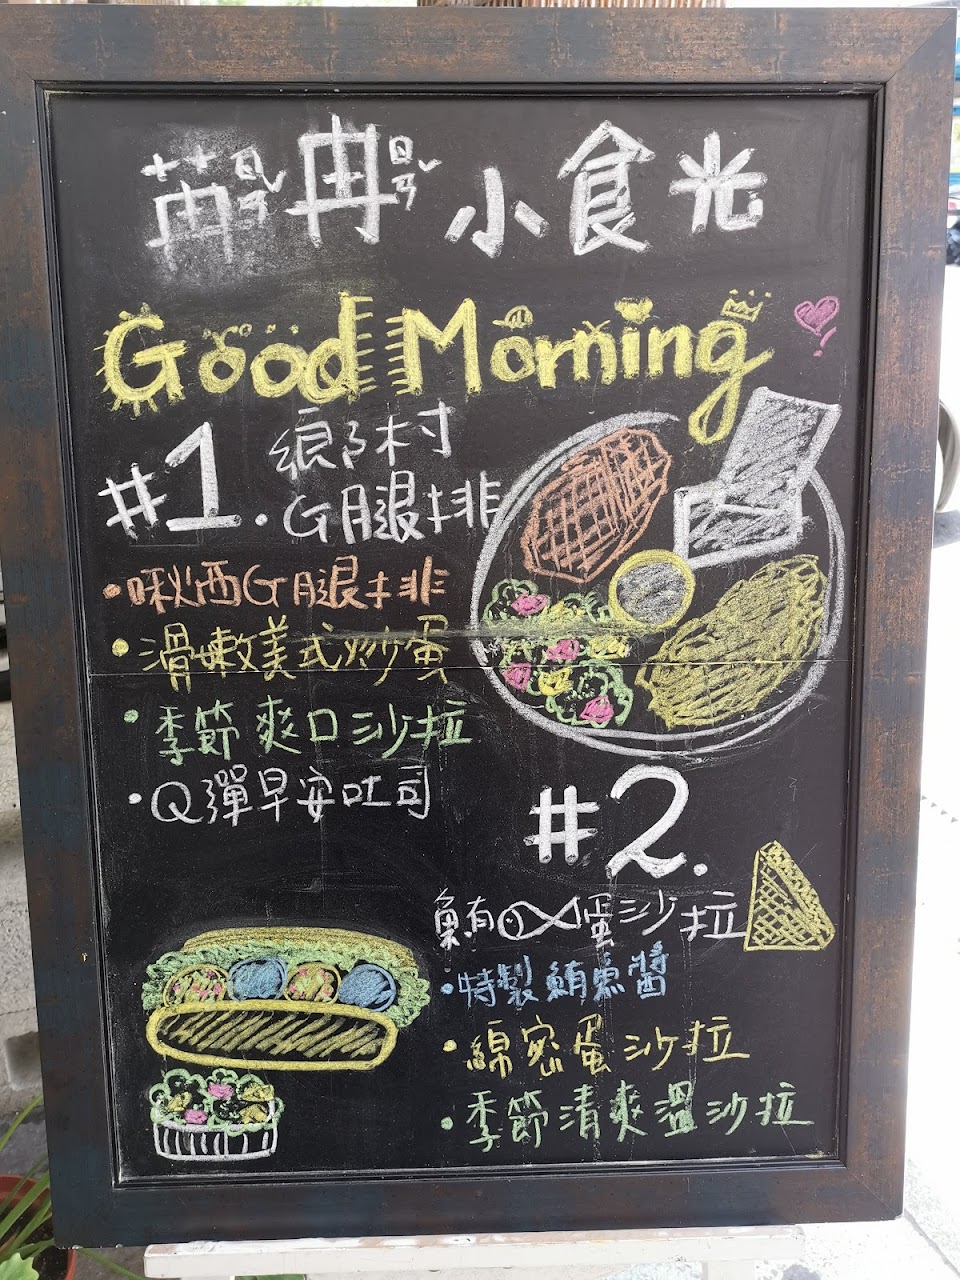 苒ㄖㄢˇ冉ㄖㄢˇ小食光
Good Morning
#1. 鄉村
G腿排
·啾西G腿排
·滑嫩美式炒蛋
·季節爽口沙拉
·Q彈早安吐司
#2.
鮪蛋沙拉
·特製鮪魚醬
·綿密蛋沙拉
·季節清爽溫沙拉